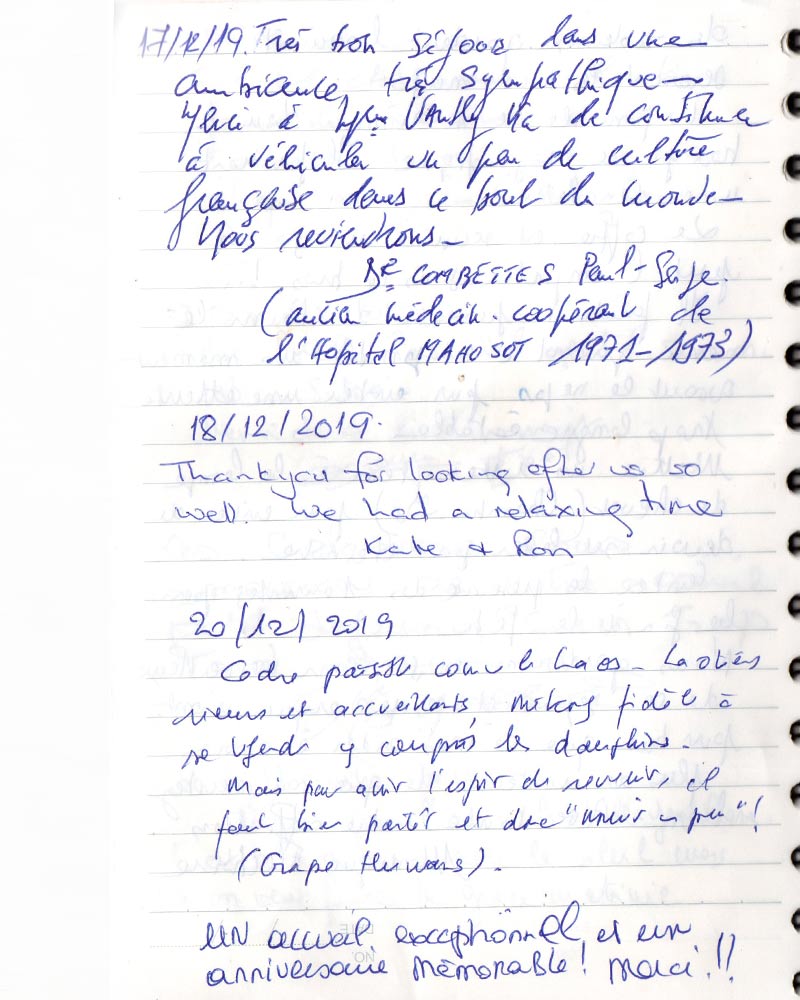 17/12/19. Très bon séjour dans une
ambiance très sympathique
à de continuer
à véhiculer un peu de culture
française dans ce bout du monde
Nous reviendrons
Dr COMBETTES Paul-Serge.
(ancien médecin coopérant de
l'Hopital MAHOSOT 1971-1973)
18/12/2019.
Thankyou for looking after us so
well. We had a relaxing time
Kate & Ron
20/12/2019
Cadre paisible comme le Laos - Laotiens
rieurs et accueillants, Mékong fidèle à
sa légende y compris les dauphins.
Mais pour avoir l'espoir de revenir, il
faut bien partir et donc "mourir un peu"!
(Groupe Humans).
UN accueil exceptionnel et un
anniversaire mémorable! Merci!!